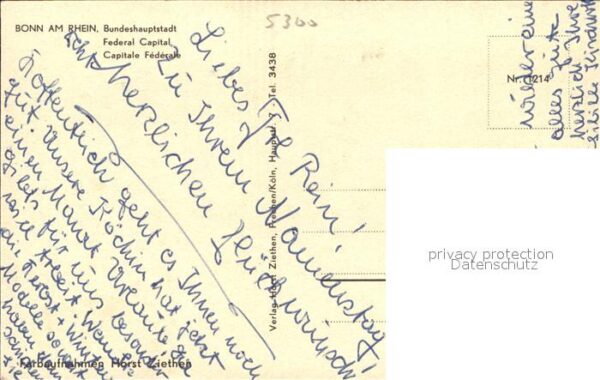 BONN AM RHEIN, Bundeshauptstadt
Federal Capital
Capitale Fédérale
5300
Nr. 1214
Verlag Horst Ziethen, Frechen/Köln, Hauptstr. 7 · Tel. 3438
Farbaufnahmen Horst Ziethen
Liebes Frl. Rein!
Zu Ihrem Namenstag
echt herzlichen Glückwunsch!
Hoffentlich geht es Ihnen noch
gut. Unsere Köchin hat jetzt
einen Monat Urlaub. Da
gibts für uns besonders
viel Arbeit.
die Herbst + Winter
Modelle
haben
wieder eine
alles Gute
herzlich Ihre
privacy protection
Datenschutz